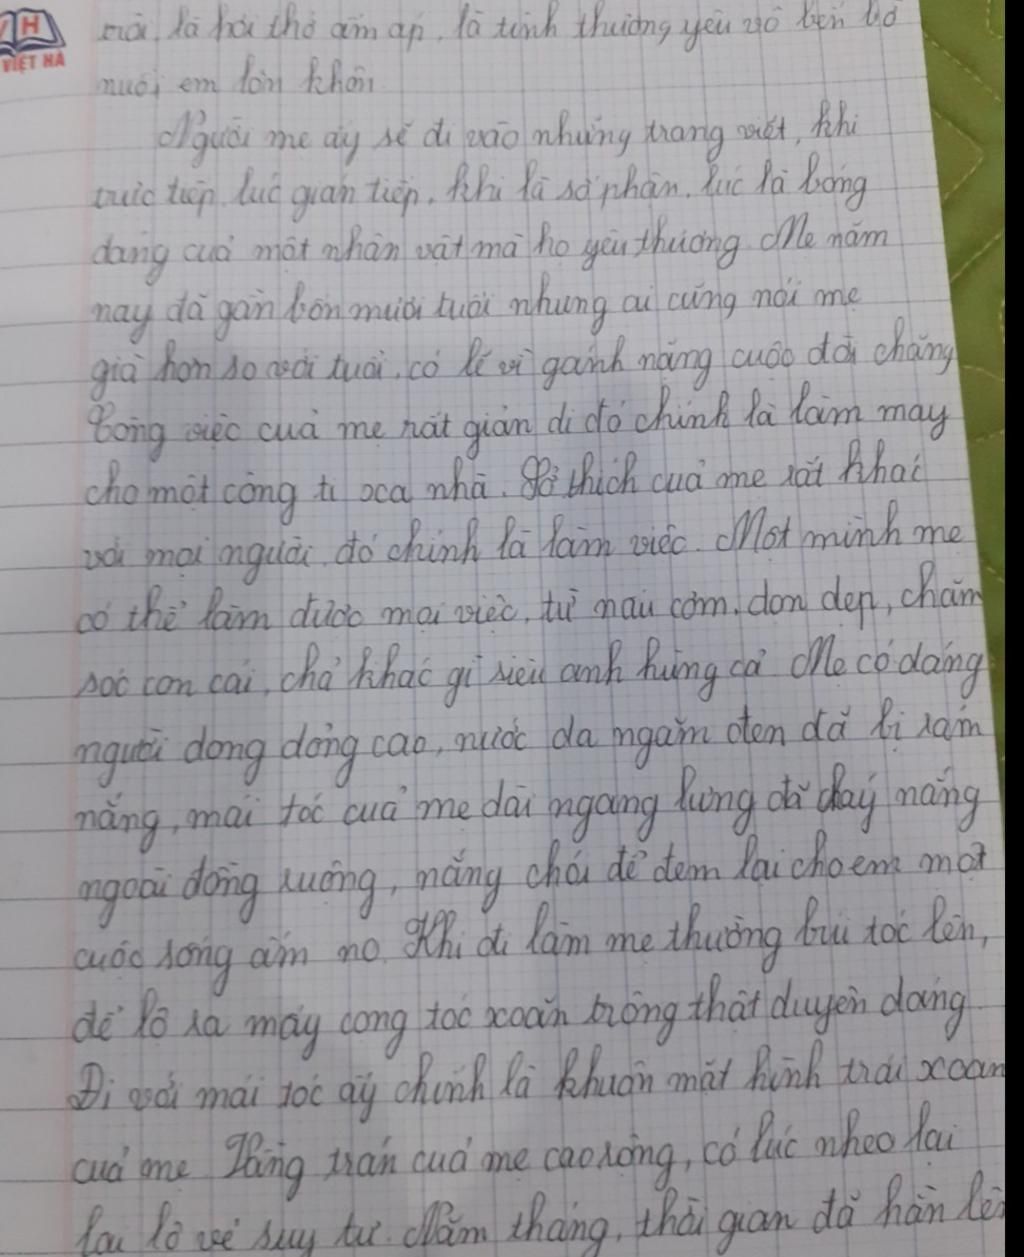 VH
VIỆT HÀ
mãi, là hơi thở ấm áp, là tình thương yêu vô bến bờ
nuôi em lớn khôn.
Người mẹ ấy sẽ đi vào những trang viết, khi
trực tiếp, lúc gián tiếp, khi là số phận, lúc là bóng
dáng của một nhân vật mà họ yêu thương. Mẹ năm
nay đã gần bốn mươi tuổi nhưng ai cũng nói mẹ
già hơn so với tuổi, có lẽ vì gánh nặng cuộc đời chăng
Công việc của mẹ rất giản dị đó chính là làm may
cho một công ti xa nhà. Sở thích của mẹ rất khác
với mọi người, đó chính là làm việc. Một mình mẹ
có thể làm được mọi việc, từ nấu cơm, dọn dẹp, chăm
sóc con cái, chả khác gì siêu anh hùng cả. Mẹ có dáng
người dong dỏng cao, nước da ngăm đen đã bị rám
nắng, mái tóc của mẹ dài ngang lưng đã cháy nắng
ngoài đồng ruộng, nắng chói để đem lại cho em một
cuộc sống ấm no. Khi đi làm mẹ thường búi tóc lên,
để lộ ra mấy cọng tóc xoăn trông thật duyên dáng
Đi với mái tóc ấy chính là khuôn mặt hình trái xoan
của mẹ. Vầng trán của mẹ cao rộng, có lúc nheo lại
lại lộ vẻ suy tư. Năm tháng, thời gian đã hằn lên